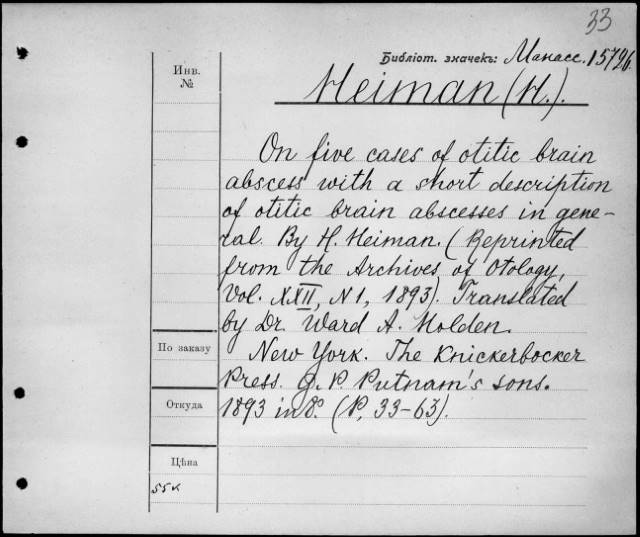 33
Библіот. значекъ: Манасс. 15726.
Инв.
№
Heiman (H.).
On five cases of otitic brain
abscess with a short description
of otitic brain abscesses in gene-
ral. By H. Heiman. (Reprinted
from the Archives of Otology,
Vol. XXII, N 1, 1893). Translated
by Dr. Ward A. Holden.
По заказу
New York. The Knickerbocker
Press. G. P. Putnam's sons.
Откуда
1893 in 8°. (P. 33-63).
Цѣна
55 к